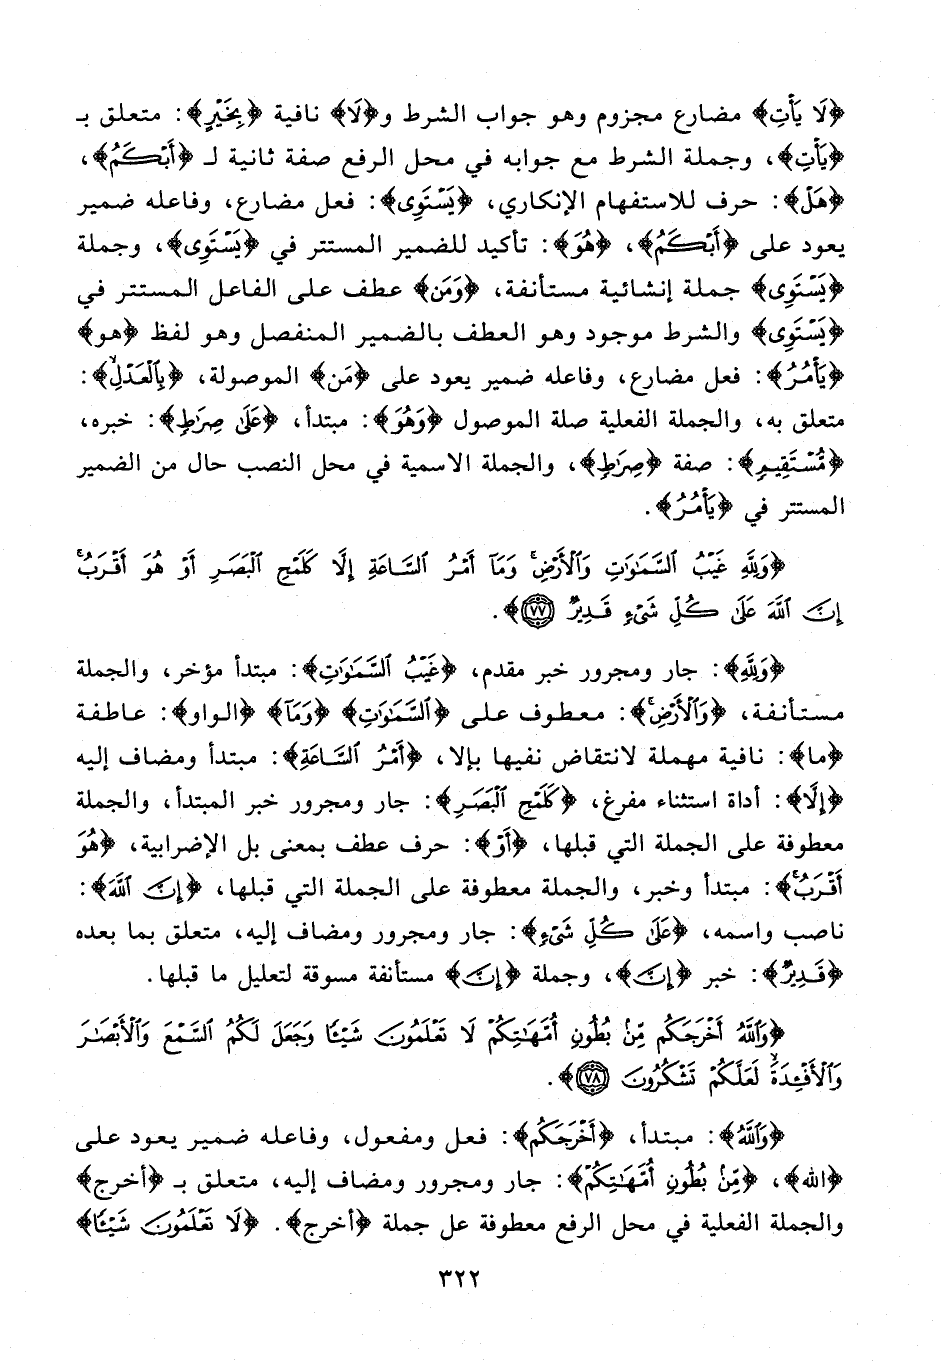 ﴿لَا يَأْتِ﴾ مضارع مجزوم وهو جواب الشرط و﴿لَا﴾ نافية ﴿بِخَيْرٍ﴾: متعلق بـ
﴿يَأْتِ﴾، وجملة الشرط مع جوابه في محل الرفع صفة ثانية لـ ﴿أَبْكَمُ﴾،
﴿هَلْ﴾: حرف للاستفهام الإنكاري، ﴿يَسْتَوِى﴾: فعل مضارع، وفاعله ضمير
يعود على ﴿أَبْكَمُ﴾، ﴿هُوَ﴾: تأكيد للضمير المستتر في ﴿يَسْتَوِى﴾، وجملة
﴿يَسْتَوِى﴾ جملة إنشائية مستأنفة، ﴿وَمَن﴾ عطف على الفاعل المستتر في
﴿يَسْتَوِى﴾ والشرط موجود وهو العطف بالضمير المنفصل وهو لفظ ﴿هو﴾
﴿يَأْمُرُ﴾: فعل مضارع، وفاعله ضمير يعود على ﴿مَن﴾ الموصولة، ﴿بِالْعَدْلِ﴾:
متعلق به، والجملة الفعلية صلة الموصول ﴿وَهُوَ﴾: مبتدأ، ﴿عَلَىٰ صِرَٰطٍ﴾: خبره،
﴿مُّسْتَقِيمٍ﴾: صفة ﴿صِرَٰطٍ﴾، والجملة الاسمية في محل النصب حال من الضمير
المستتر في ﴿يَأْمُرُ﴾.
﴿وَلِلَّهِ غَيْبُ ٱلسَّمَٰوَٰتِ وَٱلْأَرْضِ ۚ وَمَآ أَمْرُ ٱلسَّاعَةِ إِلَّا كَلَمْحِ ٱلْبَصَرِ أَوْ هُوَ أَقْرَبُ ۚ
إِنَّ ٱللَّهَ عَلَىٰ كُلِّ شَىْءٍ قَدِيرٌ ٧٧﴾.
﴿وَلِلَّهِ﴾: جار ومجرور خبر مقدم، ﴿غَيْبُ ٱلسَّمَٰوَٰتِ﴾: مبتدأ مؤخر، والجملة
مستأنفة، ﴿وَٱلْأَرْضِ ۚ﴾: معطوف على ﴿ٱلسَّمَٰوَٰتِ﴾ ﴿وَمَآ﴾ ﴿الواو﴾: عاطفة
﴿ما﴾: نافية مهملة لانتقاض نفيها بإلا، ﴿أَمْرُ ٱلسَّاعَةِ﴾: مبتدأ ومضاف إليه
﴿إِلَّا﴾: أداة استثناء مفرغ، ﴿كَلَمْحِ ٱلْبَصَرِ﴾: جار ومجرور خبر المبتدأ، والجملة
معطوفة على الجملة التي قبلها، ﴿أَوْ﴾: حرف عطف بمعنى بل الإضرابية، ﴿هُوَ
أَقْرَبُ ۚ﴾: مبتدأ وخبر، والجملة معطوفة على الجملة التي قبلها، ﴿إِنَّ ٱللَّهَ﴾:
ناصب واسمه، ﴿عَلَىٰ كُلِّ شَىْءٍ﴾: جار ومجرور ومضاف إليه، متعلق بما بعده
﴿قَدِيرٌ﴾: خبر ﴿إِنَّ﴾، وجملة ﴿إِنَّ﴾ مستأنفة مسوقة لتعليل ما قبلها.
﴿وَٱللَّهُ أَخْرَجَكُم مِّنۢ بُطُونِ أُمَّهَٰتِكُمْ لَا تَعْلَمُونَ شَيْـًٔا وَجَعَلَ لَكُمُ ٱلسَّمْعَ وَٱلْأَبْصَٰرَ
وَٱلْأَفْـِٔدَةَ ۙ لَعَلَّكُمْ تَشْكُرُونَ ٧٨﴾.
﴿وَٱللَّهُ﴾: مبتدأ، ﴿أَخْرَجَكُم﴾: فعل ومفعول، وفاعله ضمير يعود على
﴿الله﴾، ﴿مِّنۢ بُطُونِ أُمَّهَٰتِكُمْ﴾: جار ومجرور ومضاف إليه، متعلق بـ ﴿أخرج﴾
والجملة الفعلية في محل الرفع معطوفة عل جملة ﴿أخرج﴾. ﴿لَا تَعْلَمُونَ شَيْـًٔا﴾
٣٢٢